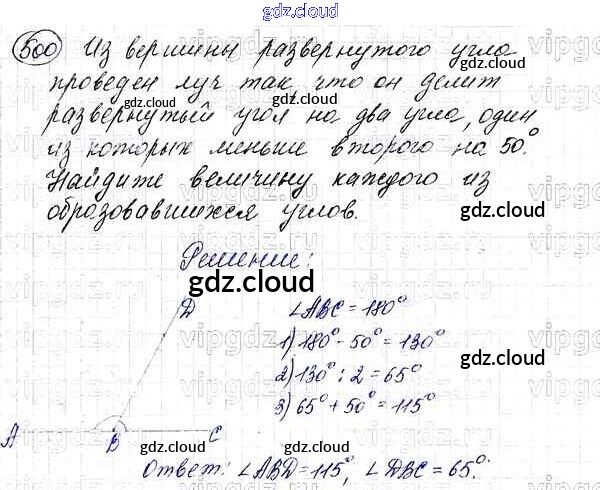 gdz.cloud
500 Из вершины развернутого угла
проведен луч так, что он делит
gdz.cloud gdz.cloud
развернутый угол на два угла, один
из которых меньше второго на 50°.
gdz.cloud gdz.cloud
Найдите величину каждого из
образовавшихся углов.
gdz.cloud
Решение:
gdz.cloud
D ∠ABC = 180°
1) 180° - 50° = 130°
gdz.cloud gdz.cloud
2) 130° : 2 = 65°
3) 65° + 50° = 115°
A B C
gdz.cloud gdz.cloud
Ответ: ∠ABD = 115°, ∠DBC = 65°.